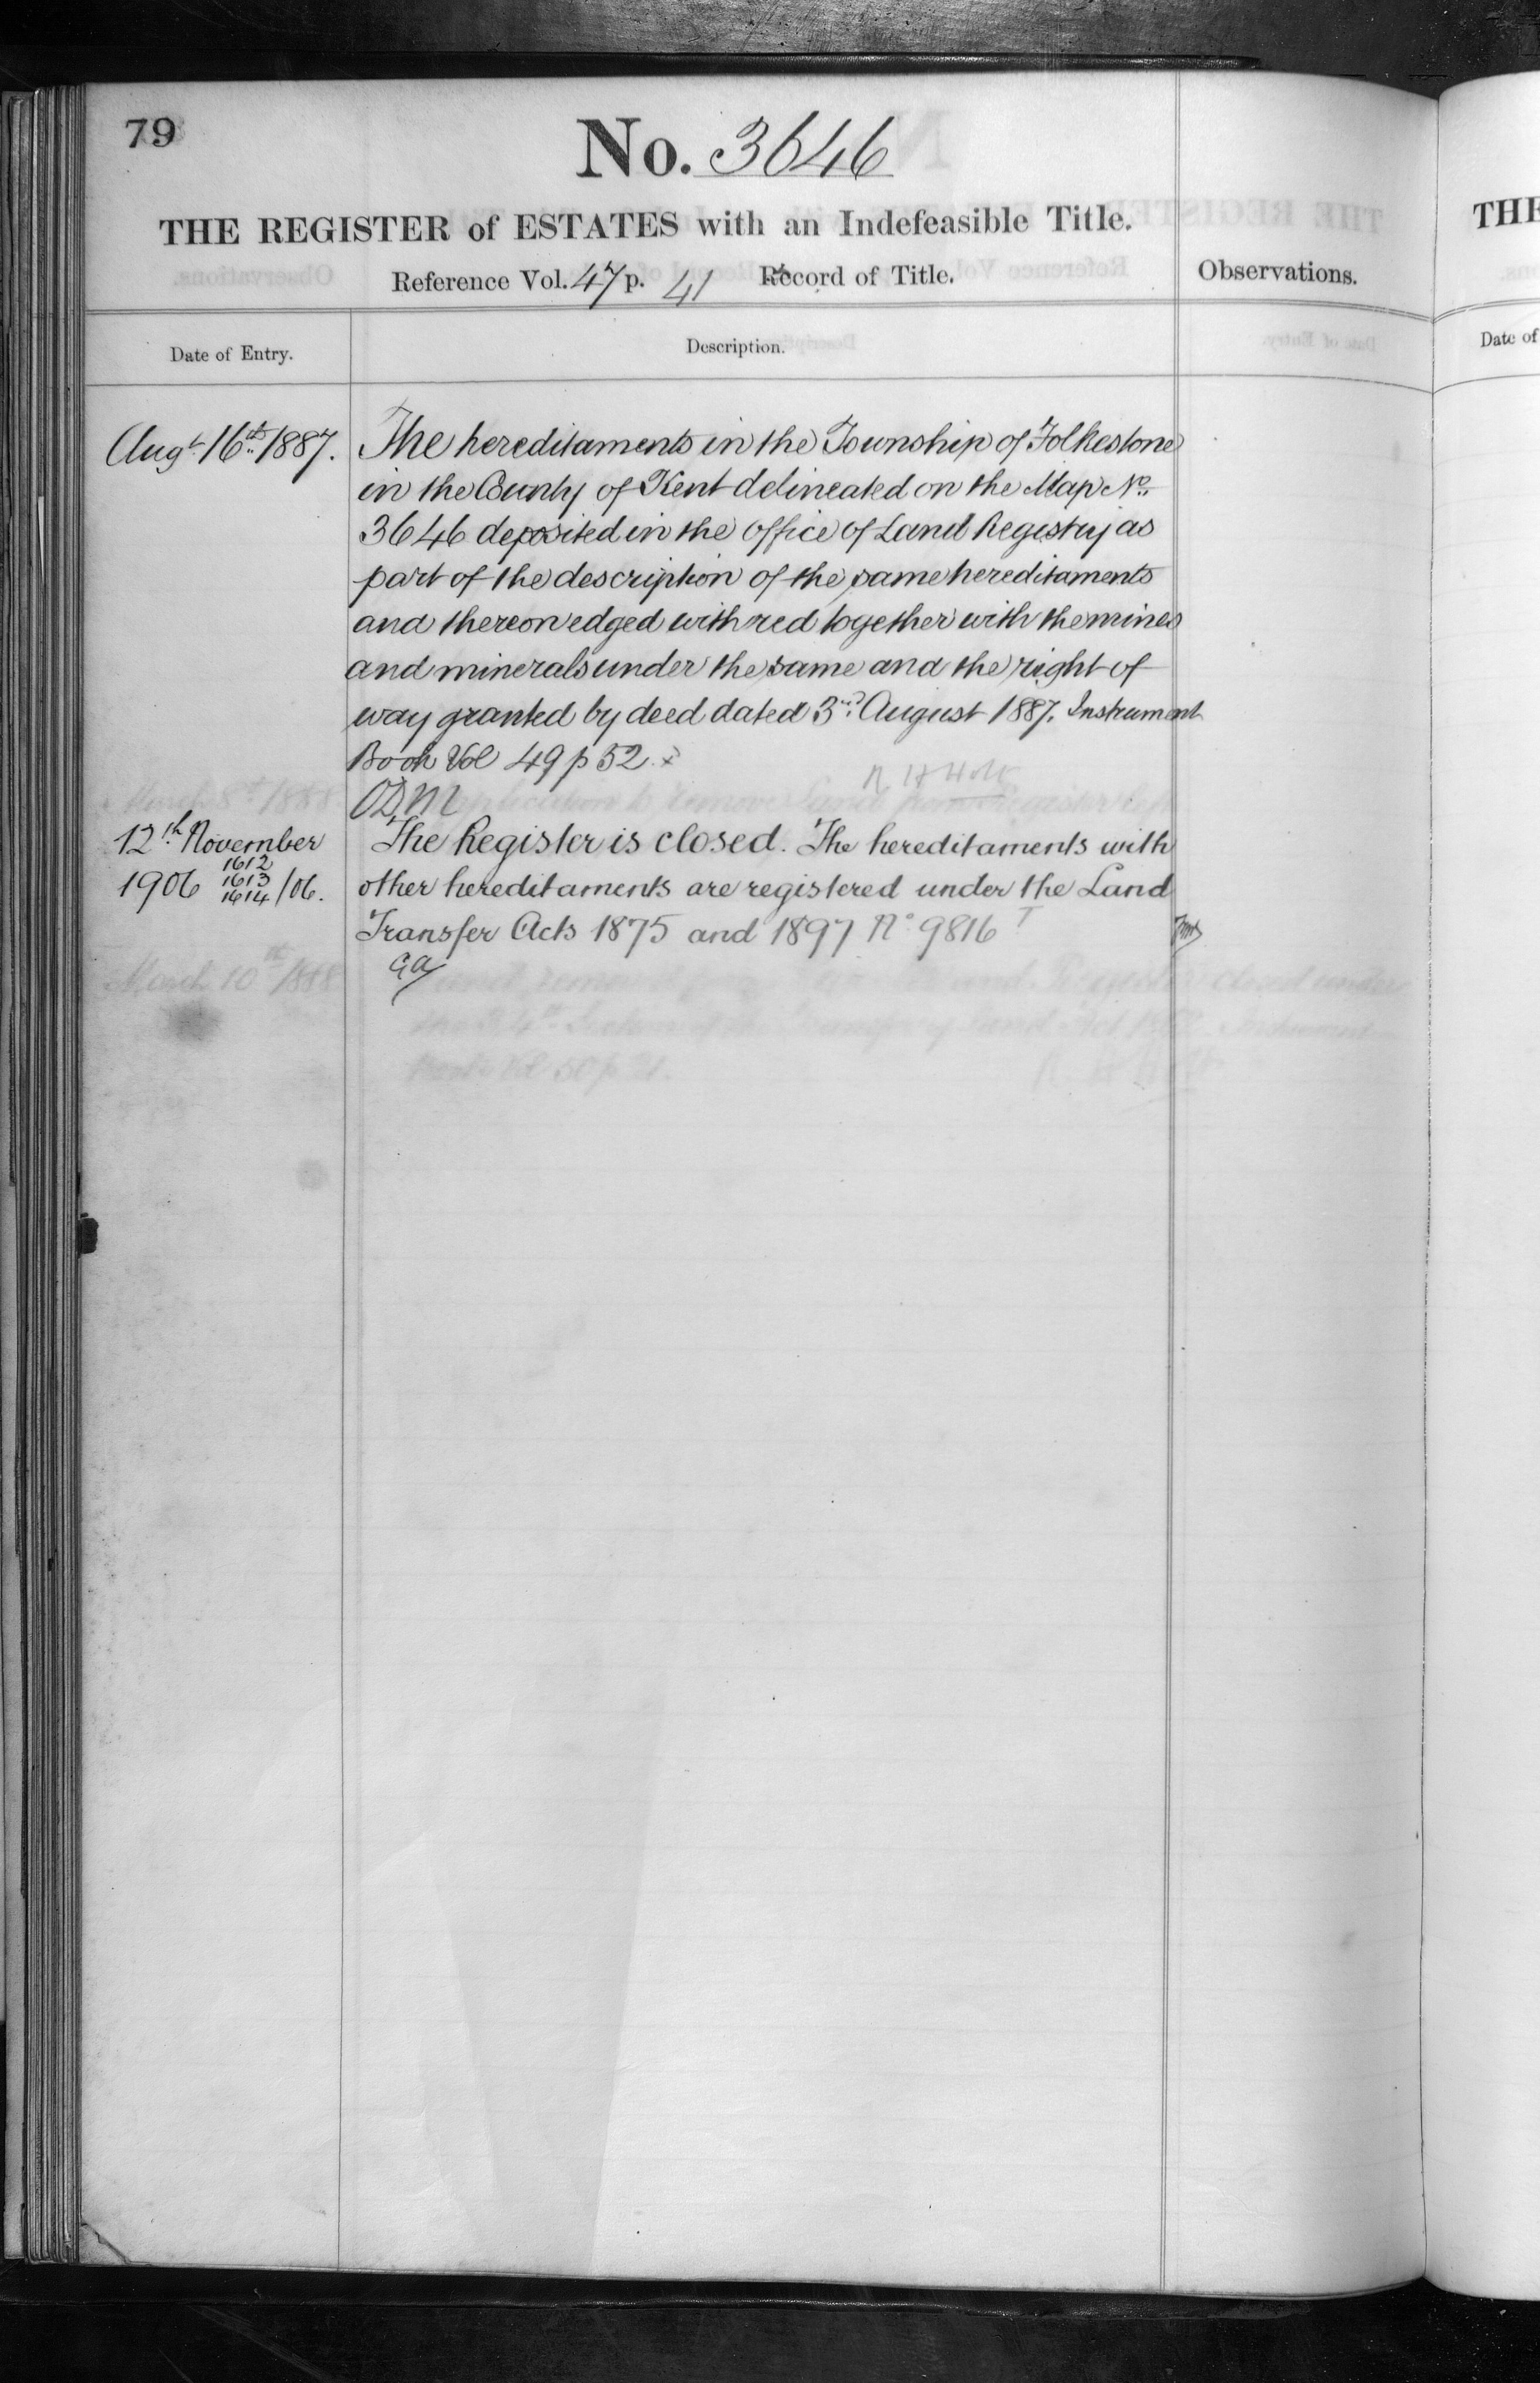 79
No. 3646
THE REGISTER of ESTATES with an Indefeasible Title.
Reference Vol. 47 p. 41 Record of Title.
Observations.
Date of Entry.
Description.
Augt. 16th. 1887.
The hereditaments in the Township of Folkestone
in the County of Kent delineated on the Map No.
3646 deposited in the office of Land Registry as
part of the description of the same hereditaments
and thereon edged with red together with the mines
and minerals under the same and the right of
way granted by deed dated 3rd August 1887. Instrument
Book Vol 49 p 52. x
R H Holt
ODM
12th November
1906 1612 1613 1614 /06.
The Register is closed. The hereditaments with
other hereditaments are registered under the Land
Transfer Acts 1875 and 1897 No 9816 T
GA
March 8th 1888
March 10th 1888
THE
Date of